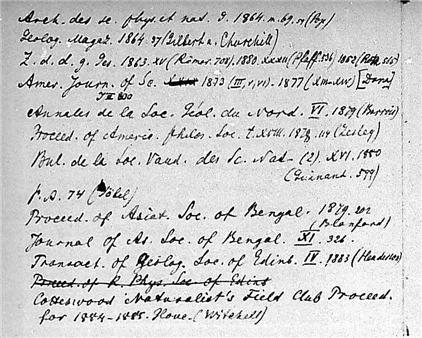 Arch. des sc. phys. et nat. G. 1864.
Geolog. Magaz. 1864. 37 (Gilbert n. Churchill)
Z. d. d. g. Ges. 1863. XV (Römer. 708). 1880. XXXII (Pfaff. 536)
Amer. Journ. of Sc. 1873 (III, V, VI). 1877 (XIII-XIV) [Dana]
Annales de la Soc. Géol. du Nord. VI. 1879 (Barrois)
Proceed. of Americ. philos. Soc. t. XVIII. 1878. 114 (Lesley)
Bul. de la Soc. Vaud. des Sc. Nat- (2). XVI. 1880
599)
p. S. 74
Proceed. of Asiat. Soc. of Bengal. 1879. 202
(Blanford)
Journal of As. Soc. of Bengal. XI. 326.
Transact. of Geolog. Soc. of Edinb. IV. 1883 (Henderson)
Proceed. of R. Phys. Soc. of Edinb
Naturalist's Field Club Proceed.
for 1884-1885. (Witchell)